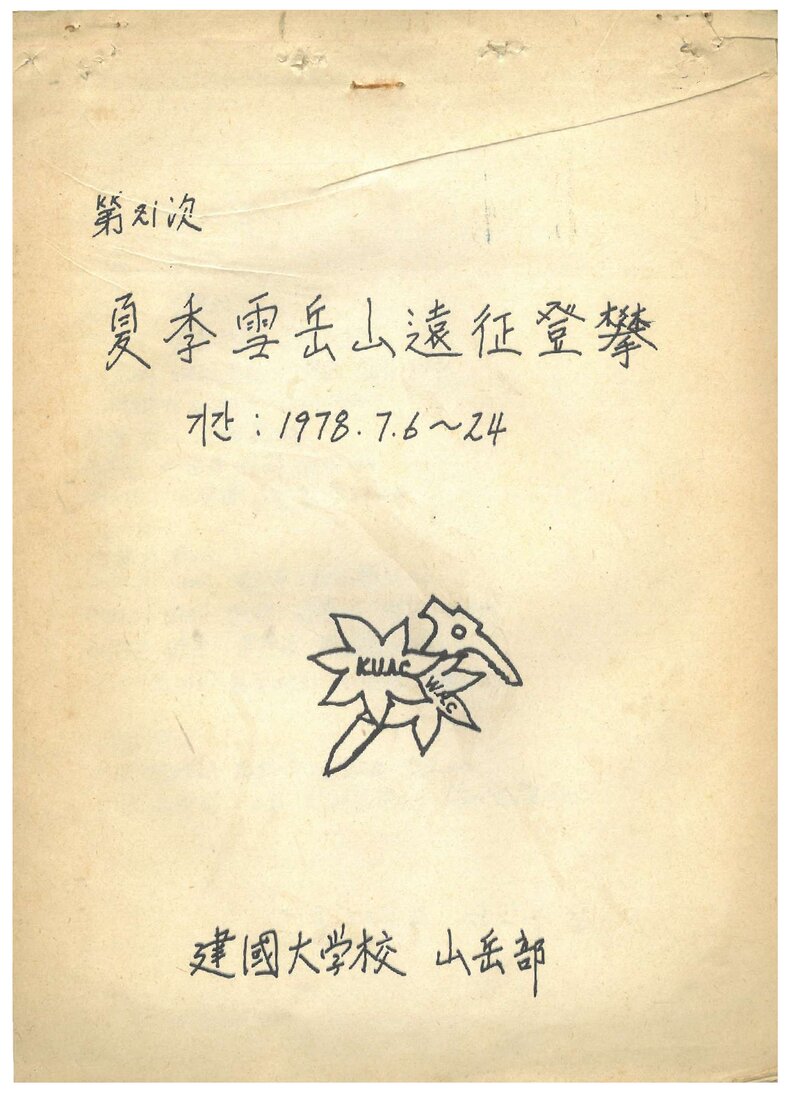 第21次
夏季雪岳山遠征登攀
기간 : 1978.7.6~24
KUAC
W.AC
建國大学校 山岳部